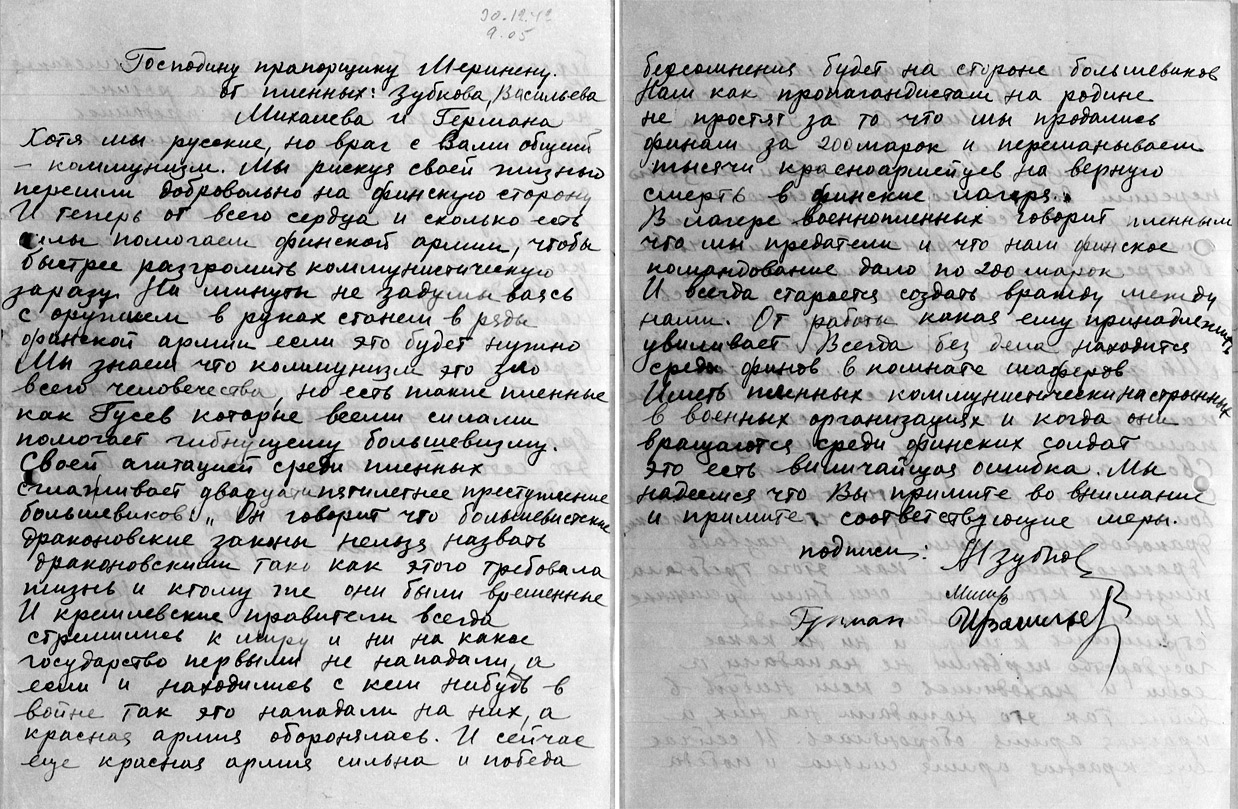 30.12.42
9.05
Господину прапорщику Меринену.
от пленных: Зубкова, Васильева
Михалева и Германа
Хотя мы русские, но враг с Вами общий
– коммунизм. Мы рискуя своей жизнью
перешли добровольно на финскую сторону
И теперь от всего сердца и сколько есть
силы помогаем финской армии, чтобы
быстрее разгромить коммунистическую
заразу. На минуты не задумываясь
с оружием в руках станем в ряды
финской армии если это будет нужно
Мы знаем что коммунизм это зло
всего человечества, но есть такие пленные
как Гусев которые всеми силами
помогает гибнущему большевизму.
Своей агитацией среди пленных
сглаживает двадцатипятилетнее преступление
большевиков: „ Он говорит что большевистские
драконовские законы нельзя назвать
драконовскими так как этого требовала
жизнь и ктому же они были временные
И кремлевские правители всегда
стремились к миру и ни на какое
государство первыми не нападали, а
если и находились с кем нибудь в
войне так это нападали на них, а
красная армия оборонялась. И сейчас
еще красная армия сильна и победа
безсомнения будет на стороне большевиков
Нам как пропагандистам на родине
не простят за то что мы продались
финам за 200 марок и переманываем
тысячи красноармейцев на верную
смерть в финские лагеря.„
В лагере военнопленных говорит пленным
что мы предатели и что нам финское
командование дало по 200 марок
И всегда старается создать вражду между
нами. От работы какая ему принадлежит
увиливает. Всегда без дела находится
среди финов в комнате шаферов
Иметь пленных коммунистически настроенных
в военных организациях и когда они
вращаются среди финских солдат
это есть виличайшая ошибка. Мы
надеемся что Вы примите во внимание
и примите соответствующие меры.
подписи: Зубков
Михал
Герман Васильев